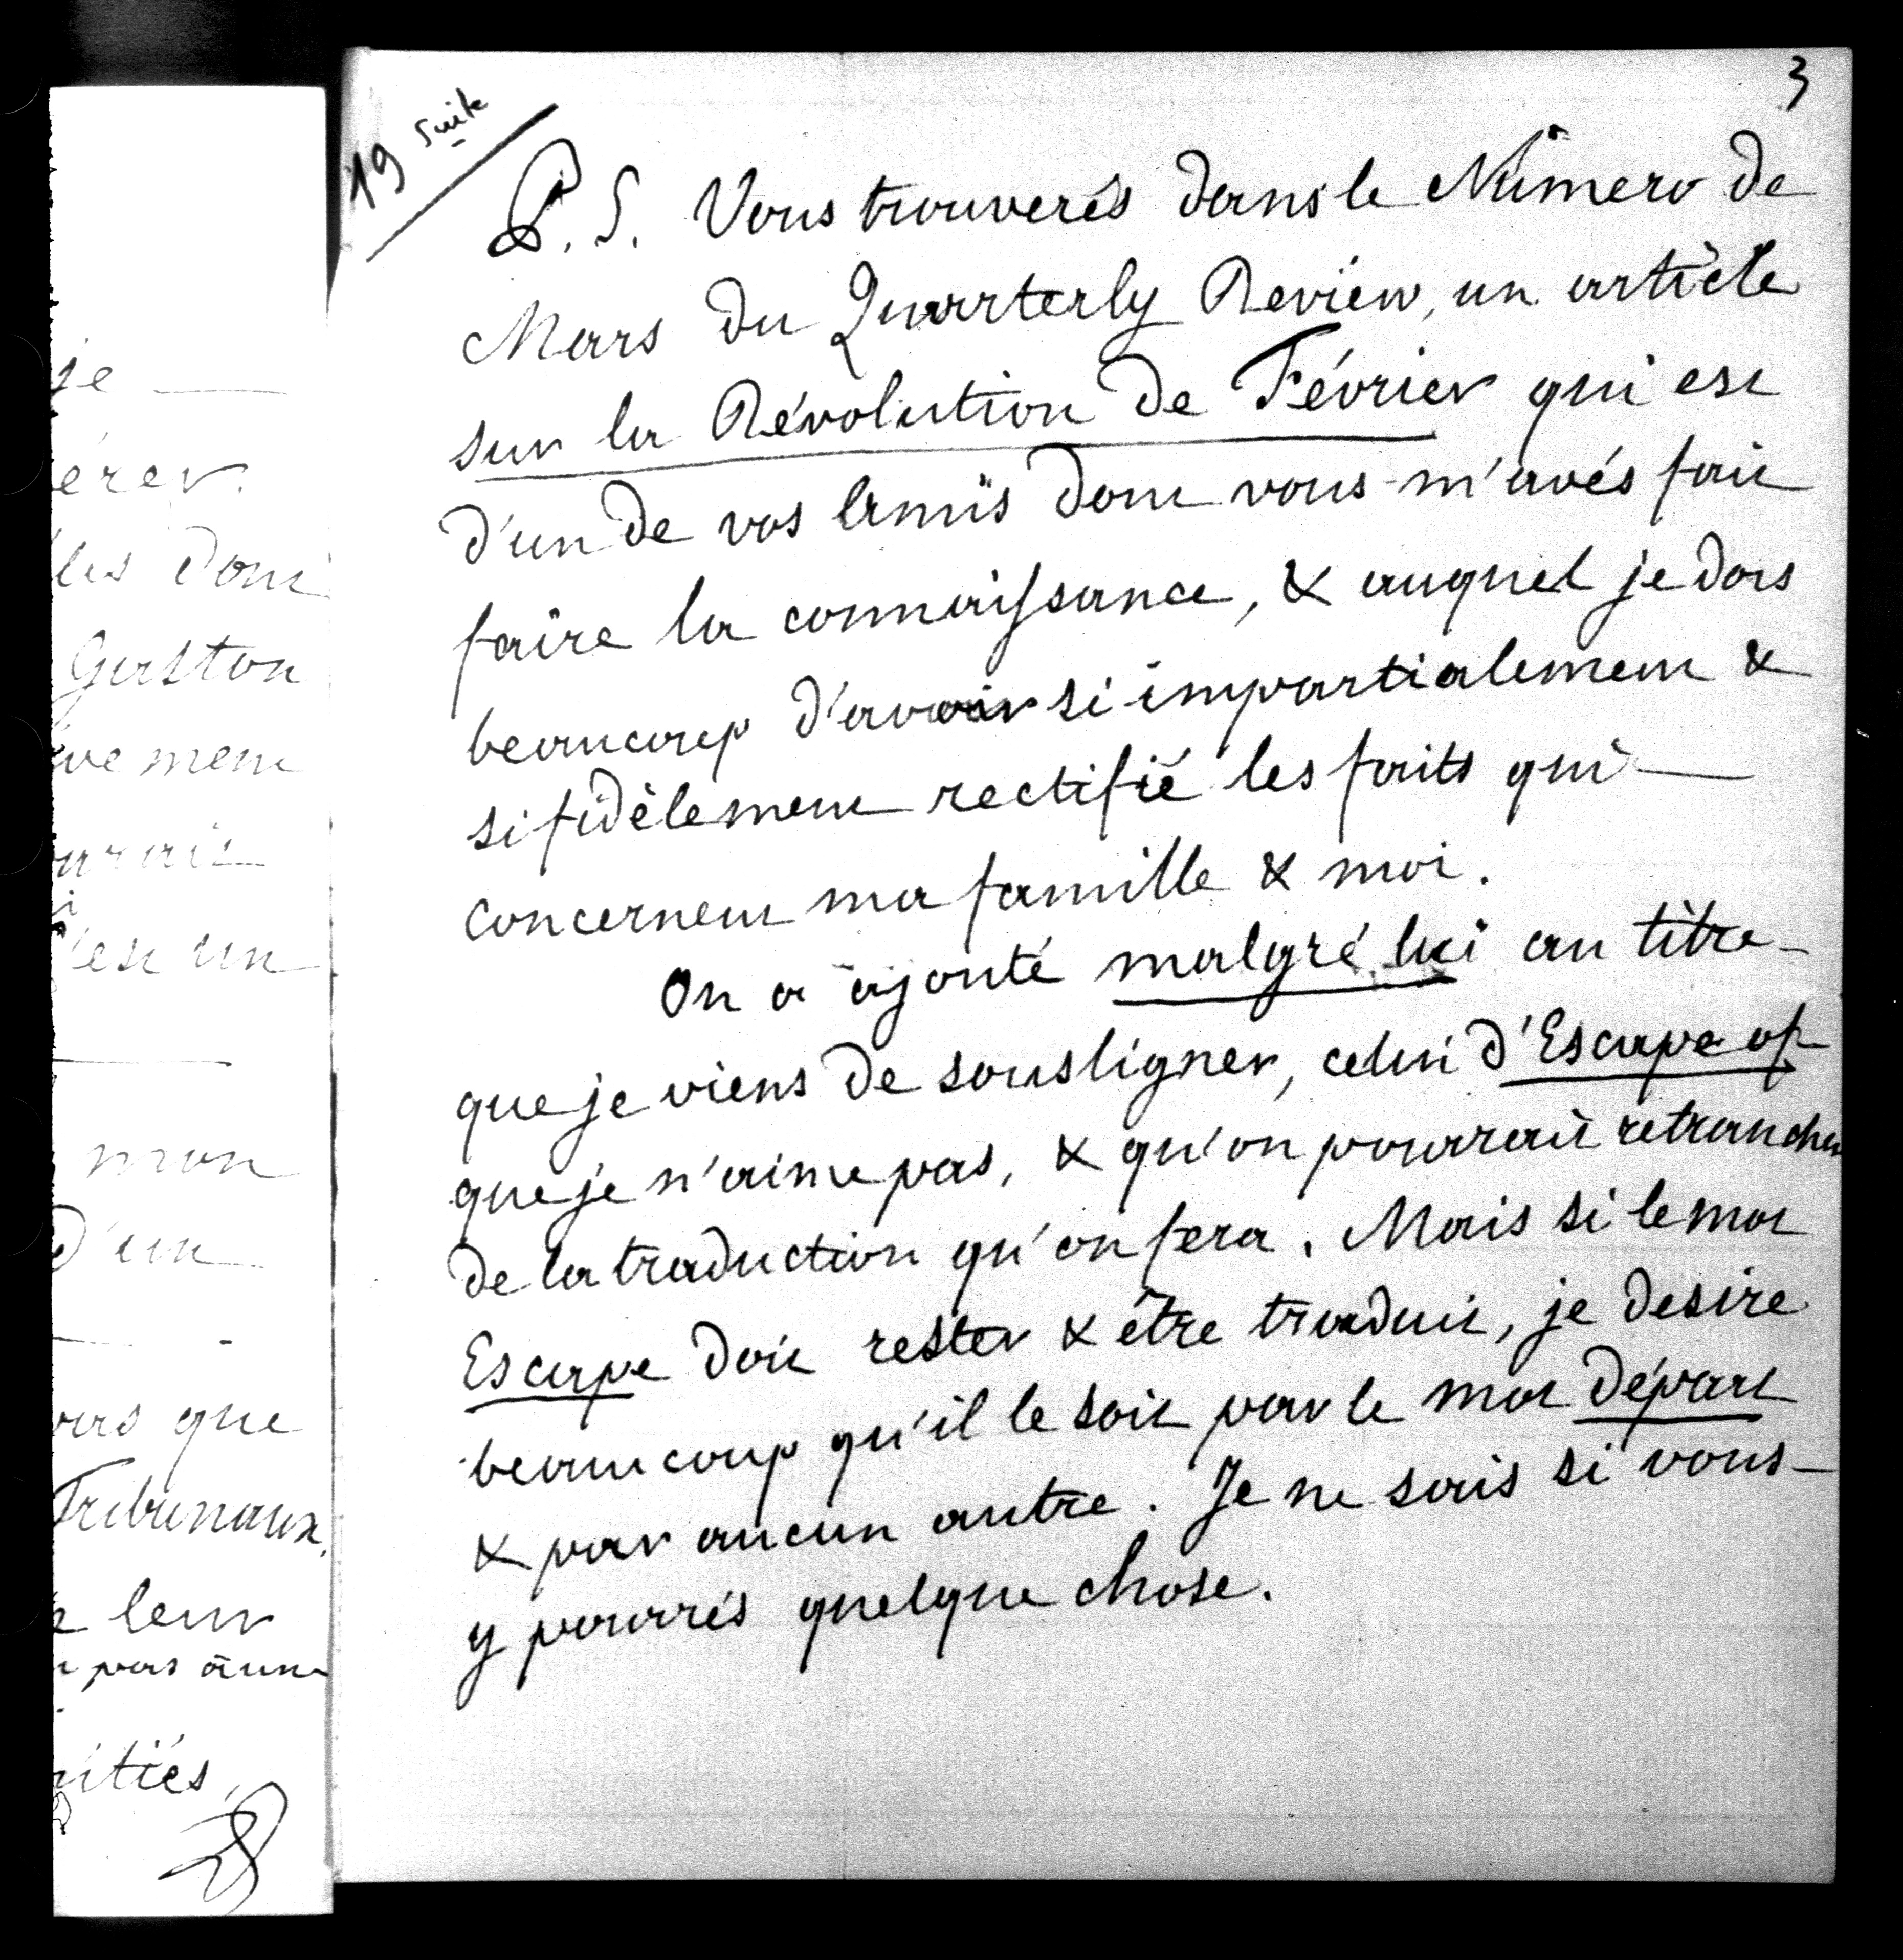 je
érer.
les dont
Gaston
ve ment
urait
'est un
mon
d'un
pas que
Tribunaux.
leur
pas à une
itiés,
3
19 suite
P. S. Vous trouverés dans le Numero de
Mars du Quarterly Review, un article
sur la Révolution de Février qui est
d'un de vos Amis dont vous m'avés fait
faire la connaissance, & auquel je dois
beaucoup d'avoir si impartialement &
si fidèlement rectifié les faits qui
concernent ma famille & moi.
On a ajouté malgré lui au titre
que je viens de sousligner, celui d'Escape of
que je n'aime pas, & qu'on pourrait retrancher
de la traduction qu'on fera. Mais si le mot
Escape doit rester & être traduit, je desire
beaucoup qu'il le soit par le mot départ
& par aucun autre. Je ne sais si vous
y pourrés quelque chose.